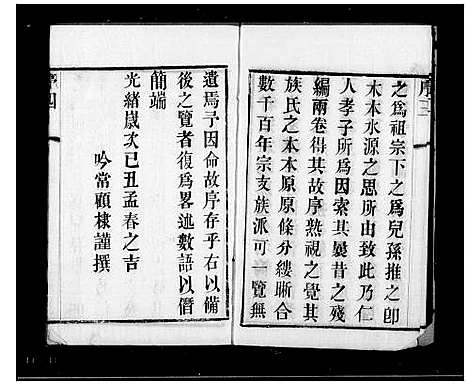 之爲祖宗下之爲兒孫推之卽
木本水源之思所由致此乃仁
人孝子所爲因索其曩昔之殘
編兩卷得其故序熟視之覺其
族氏之本木原原條分縷晰合
數千百年宗支族派可一覽無
遺焉予因命故序存乎右以備
後之覽者復爲畧述數語以僭
簡端
光緒歲次己丑孟春之吉
吟常顧棣謹撰